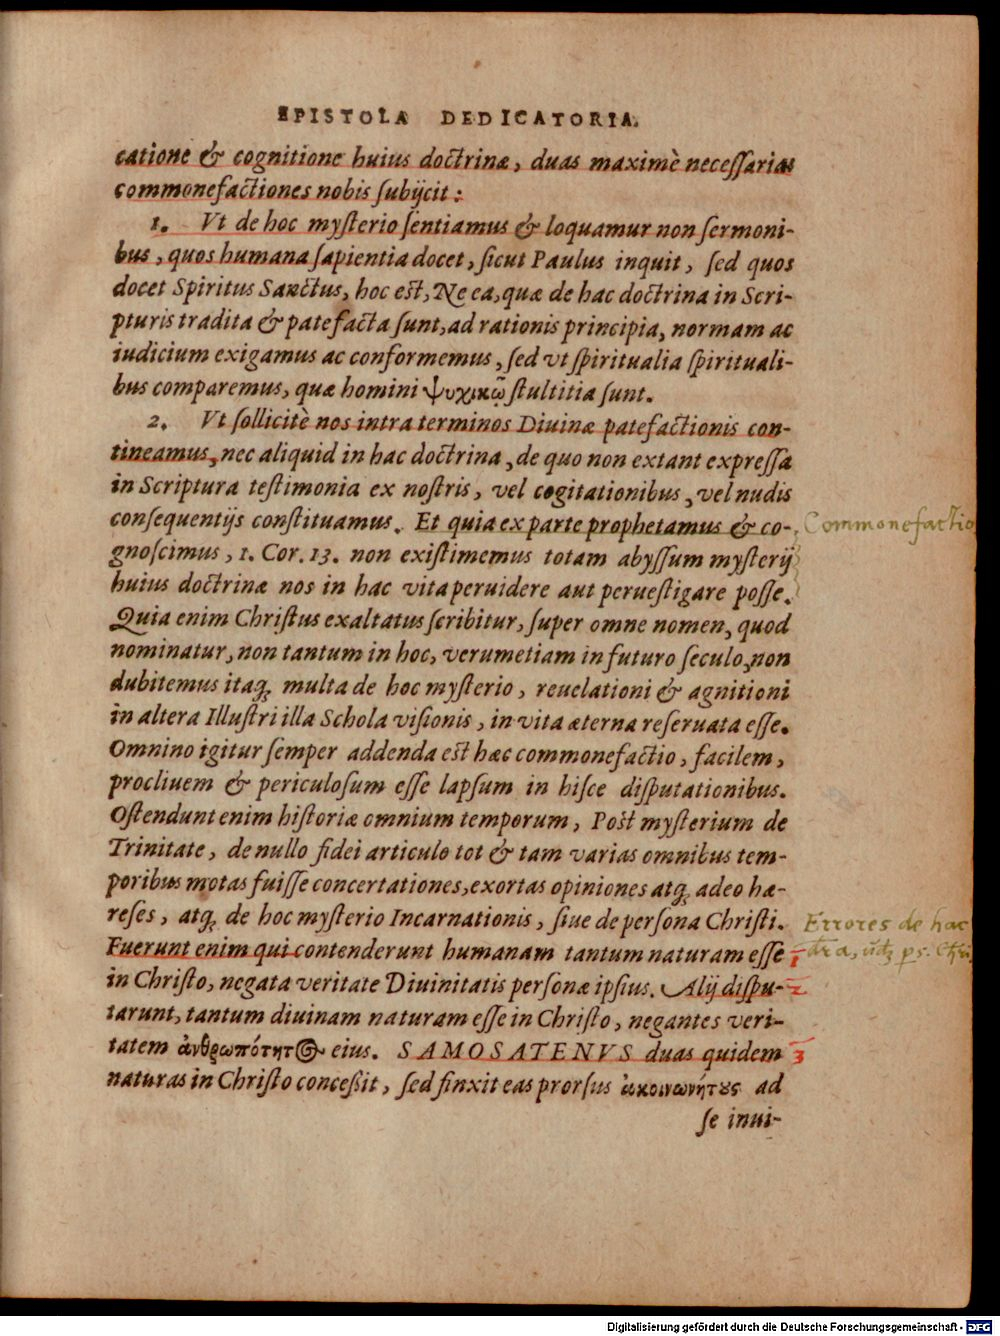 EPISTOLA DEDICATORIA.
catione & cognitione huius doctrinæ, duas maximè necessarias
commonefactiones nobis subijcit:
1. Vt de hoc mysterio sentiamus & loquamur non sermoni-
bus, quos humana sapientia docet, sicut Paulus inquit, sed quos
docet Spiritus Sanctus, hoc est, Ne ea, quæ de hac doctrina in Scri-
pturis tradita & patefacta sunt, ad rationis principia, normam ac
iudicium exigamus ac conformemus, sed vt spiritualia spirituali-
bus comparemus, quæ homini ψυχικῷ stultitia sunt.
2. Vt sollicitè nos intra terminos Diuinæ patefactionis con-
tineamus, nec aliquid in hac doctrina, de quo non extant expressa
in Scriptura testimonia ex nostris, vel cogitationibus, vel nudis
consequentijs constituamus. Et quia ex parte prophetamus & co-
Commonefactio
gnoscimus, 1. Cor. 13. non existimemus totam abyssum mysterij
huius doctrinæ nos in hac vita peruidere aut peruestigare posse.
Quia enim Christus exaltatus scribitur, super omne nomen, quod
nominatur, non tantum in hoc, verumetiam in futuro seculo, non
dubitemus itaq́; multa de hoc mysterio, reuelationi & agnitioni
in altera Illustri illa Schola visionis, in vita æterna reseruata esse.
Omnino igitur semper addenda est hæc commonefactio, facilem,
procliuem & periculosum esse lapsum in hisce disputationibus.
Ostendunt enim historiæ omnium temporum, Post mysterium de
Trinitate, de nullo fidei articulo tot & tam varias omnibus tem-
poribus motas fuisse concertationes, exortas opiniones atq́; adeo hæ-
reses, atq́; de hoc mysterio Incarnationis, siue de persona Christi.
Errores de hac
Fuerunt enim qui contenderunt humanam tantum naturam esse
1
in Christo, negata veritate Diuinitatis personæ ipsius. Alij dispu-
2
tarunt, tantum diuinam naturam esse in Christo, negantes veri-
tatem ἀνθρωπότητος eius. SAMOSATENVS duas quidem
3
naturas in Christo concessit, sed finxit eas prorsus ἀκοινωνήτους ad
se inui-
Digitalisierung gefördert durch die Deutsche Forschungsgemeinschaft - DFG